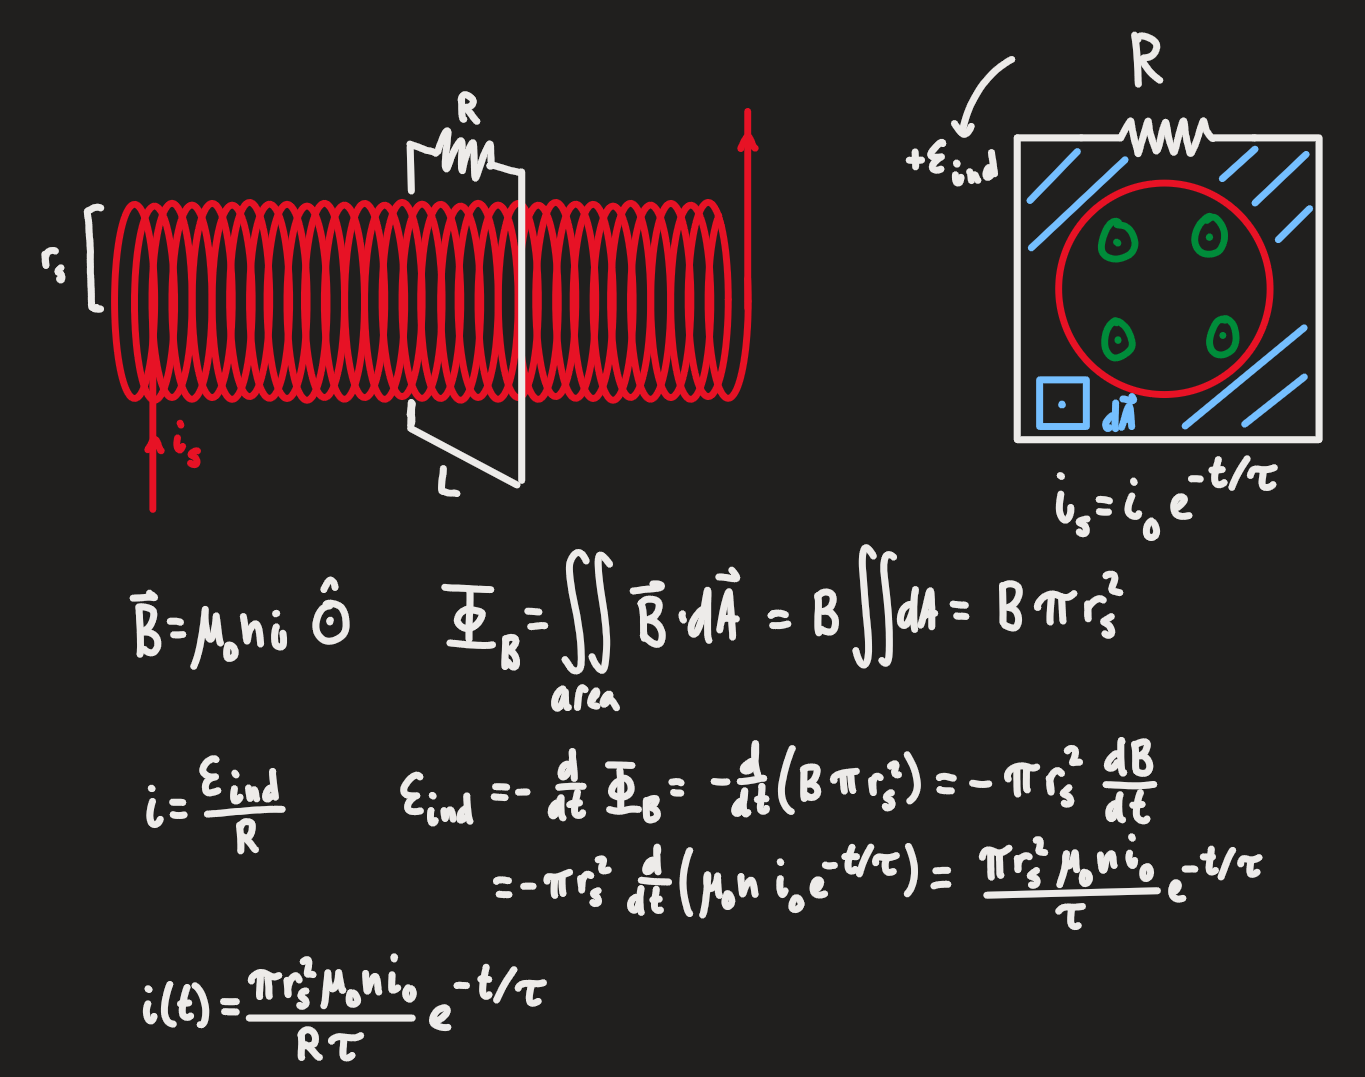 R
R
+ℰ_ind
r_s
i_s
L
dA⃗
i_s = i_0 e^{-t/τ}
B⃗ = μ_0 n i ⊙̂
Φ_B = ∬_area B⃗ · dA⃗ = B ∬ dA = B π r_s^2
i = ℰ_ind / R
ℰ_ind = - d/dt Φ_B = - d/dt (B π r_s^2) = - π r_s^2 dB/dt
= - π r_s^2 d/dt (μ_0 n i_0 e^{-t/τ}) = (π r_s^2 μ_0 n i_0 / τ) e^{-t/τ}
i(t) = (π r_s^2 μ_0 n i_0 / R τ) e^{-t/τ}